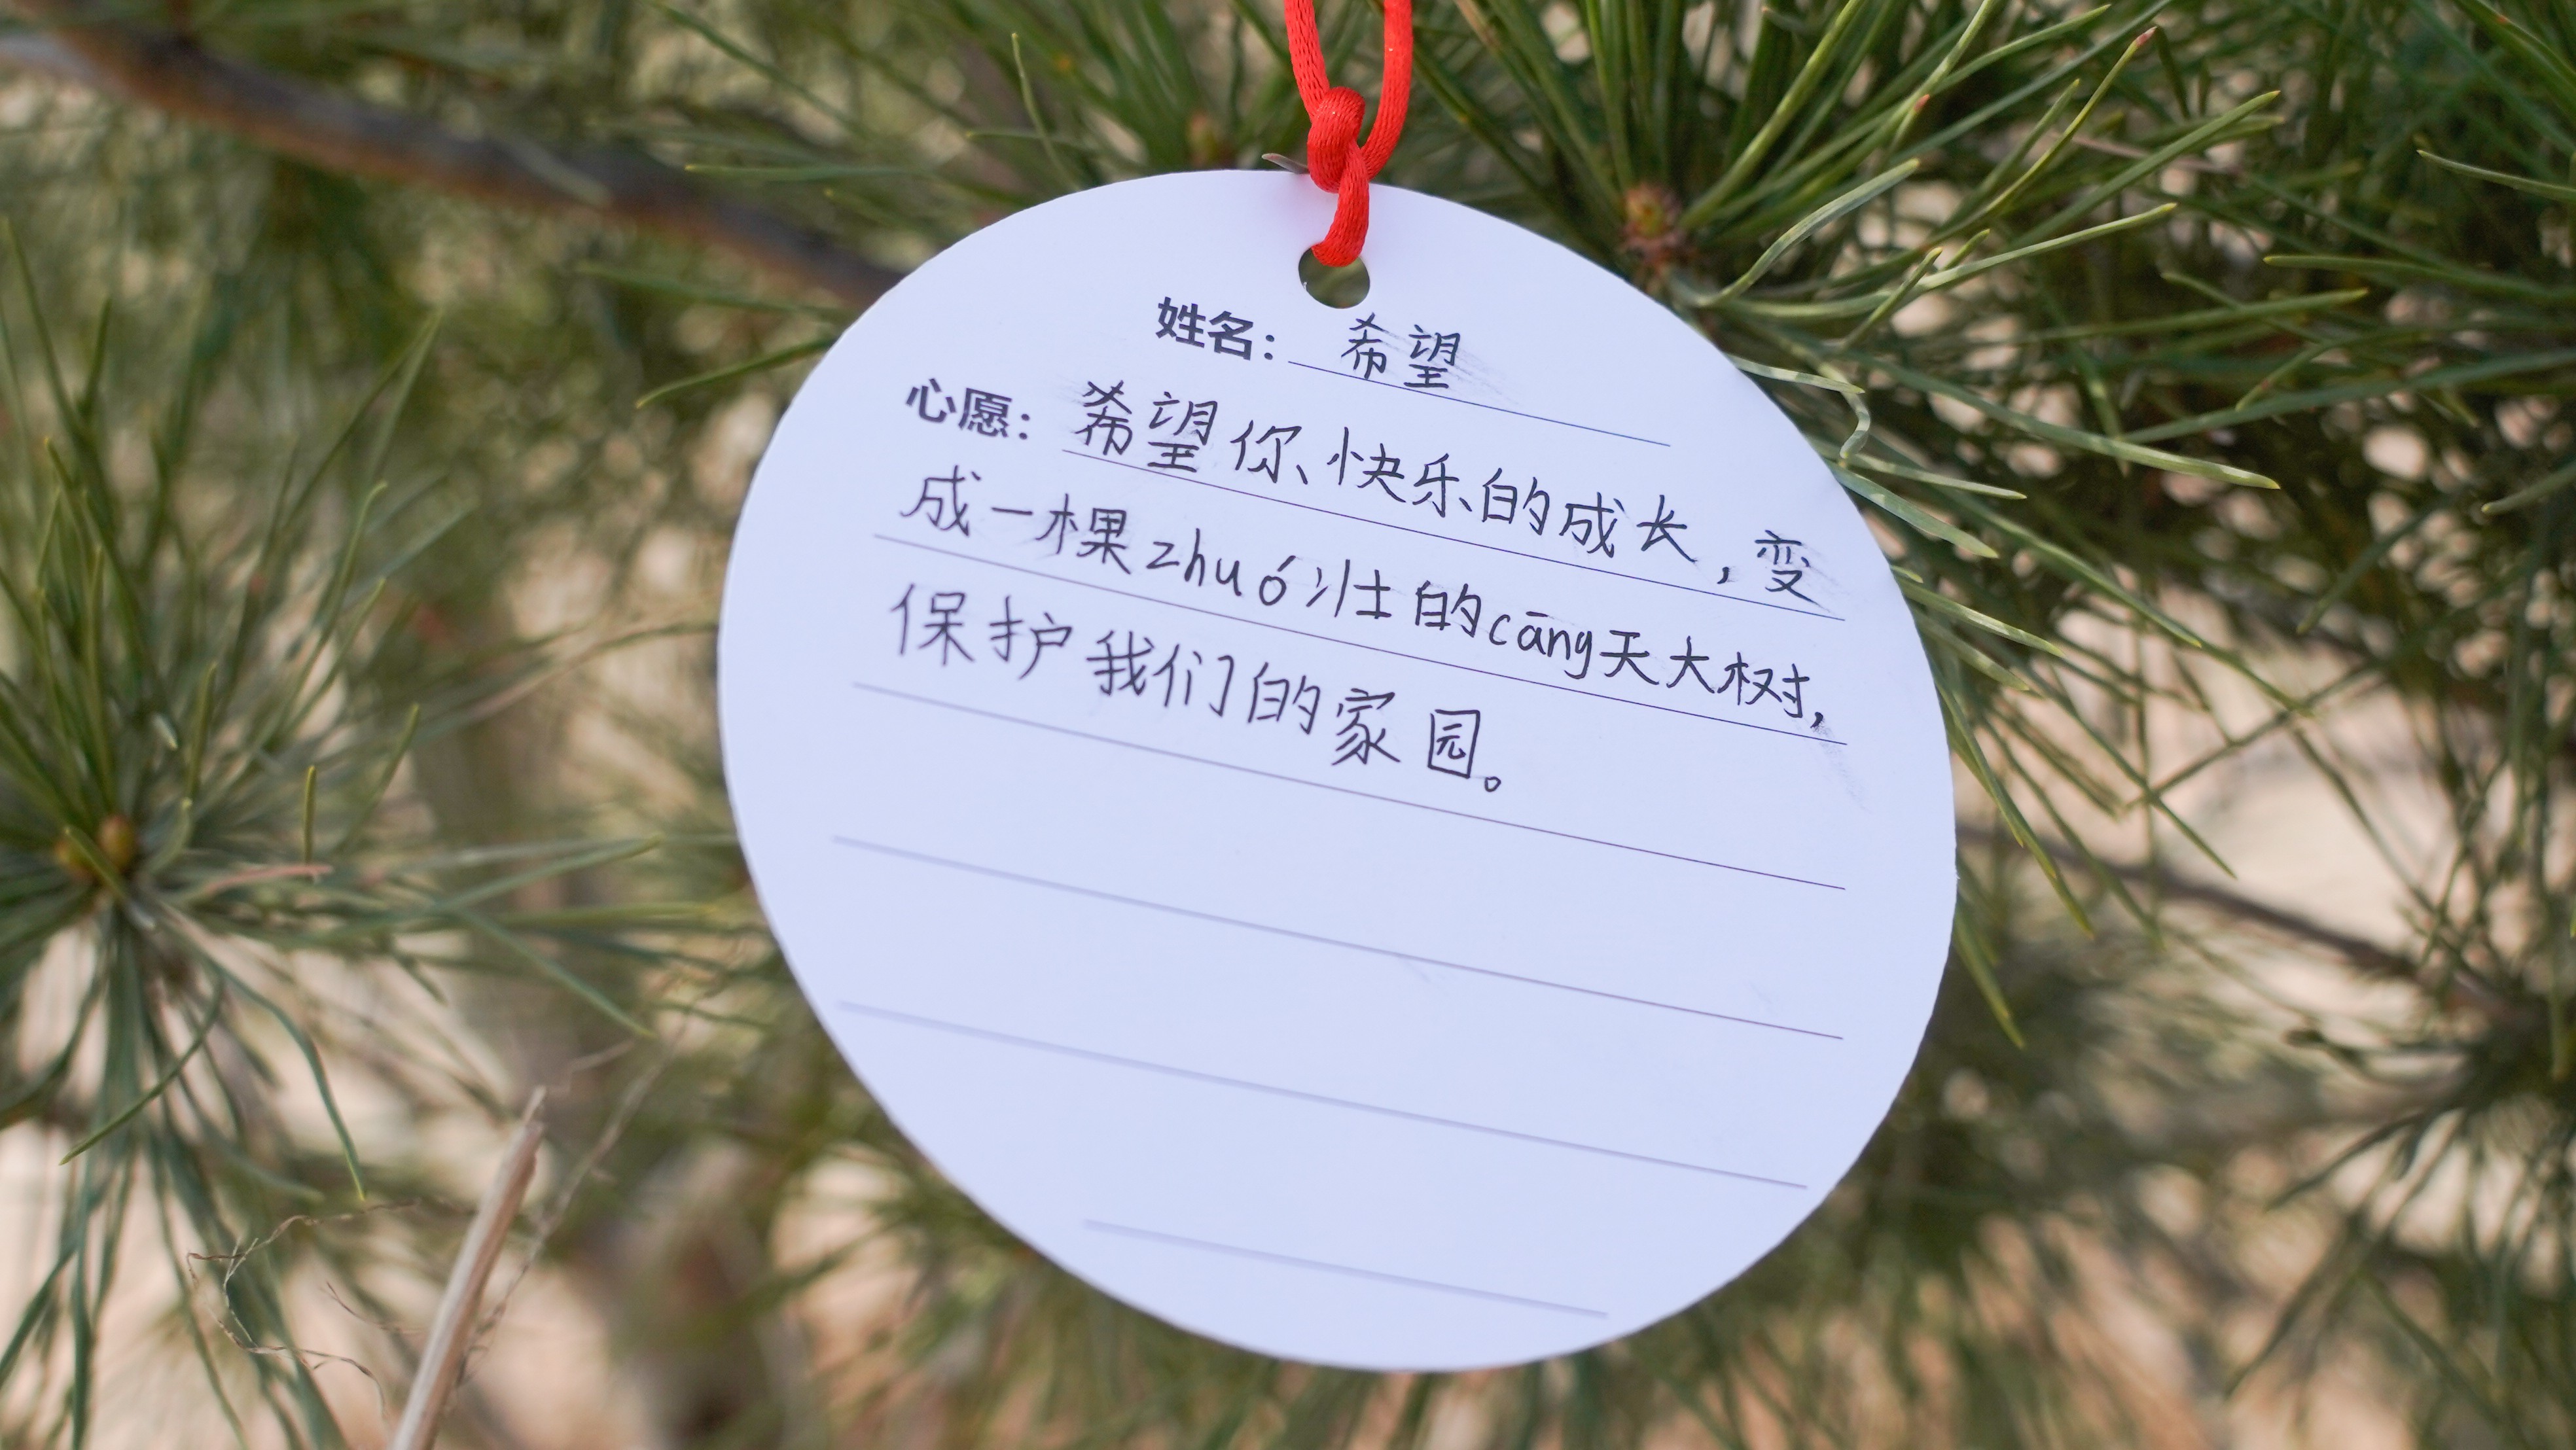 姓名：希望
心愿：希望你快乐的成长，变
成一棵zhuó壮的cāng天大树，
保护我们的家园。